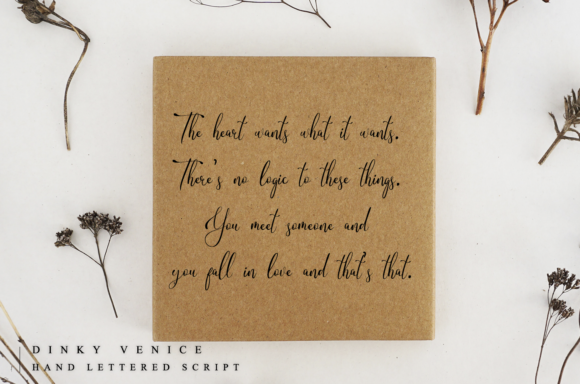 The heart wants what it wants.
There's no logic to these things.
You meet someone and
you fall in love and that's that.
DINKY VENICE
HAND LETTERED SCRIPT